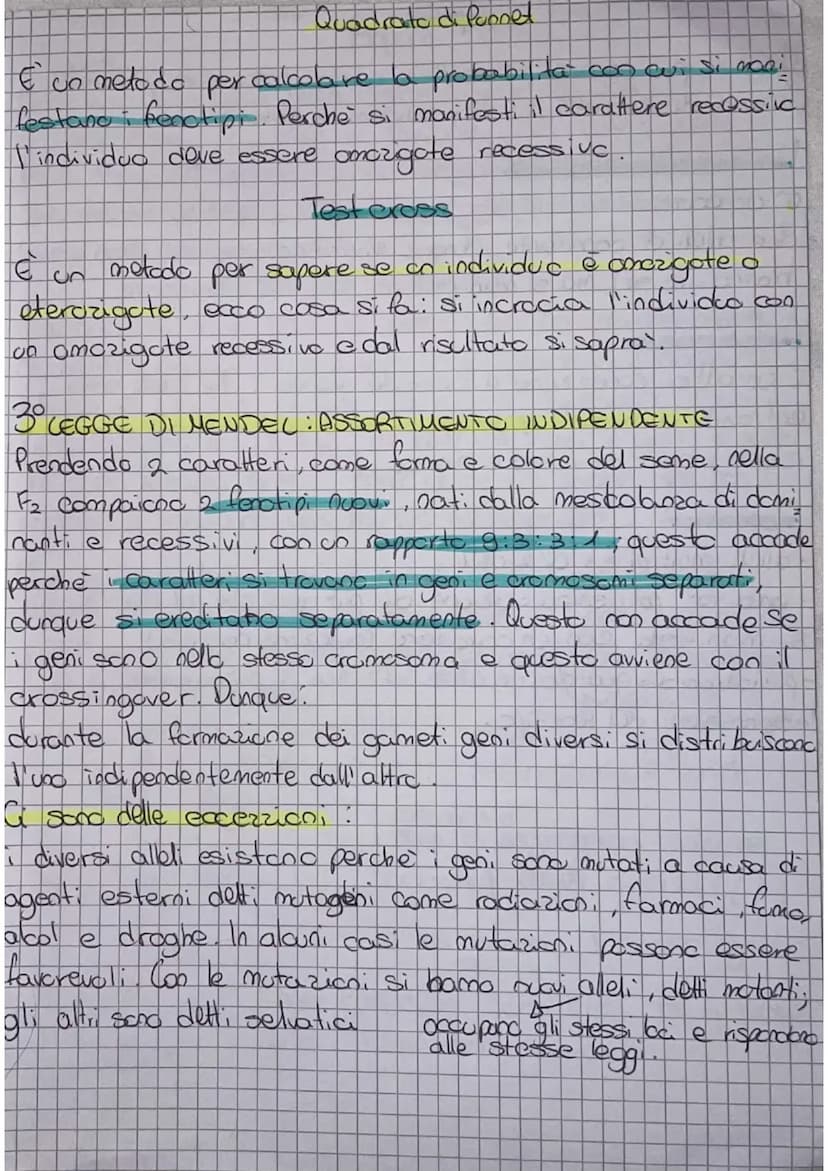 Quadrato di Punnet
È un metodo per calcolare la probabilità con cui si mani
festano i fenotipi. Perché si manifesti il carattere recessivo
l'individuo deve essere omozigote recessivo.
Testcross
È un metodo per sapere se un individuo è omozigote o
eterozigote, ecco cosa si fa: si incrocia l'individuo con
un omozigote recessivo e dal risultato si saprà.
3° LEGGE DI MENDEL: ASSORTIMENTO INDIPENDENTE
Prendendo 2 caratteri, come forma e colore del seme, nella
F2 compaiono 2 fenotipi nuovi, nati dalla mescolanza di domi
nanti e recessivi, con un rapporto 9:3:3:1, questo accade
perché i caratteri si trovano in geni e cromosomi separati,
dunque si ereditano separatamente. Questo non accade se
i geni sono nello stesso cromosoma e questo avviene con il
crossingover. Dunque:
durante la formazione dei gameti geni diversi si distribuiscono
l'uno indipendentemente dall'altro.
Ci sono delle eccezzioni:
i diversi alleli esistono perché i geni sono mutati a causa di
agenti esterni detti mutageni come radiazioni, farmaci, fumo,
alcol e droghe. In alcuni casi le mutazioni possono essere
favorevoli. Con le mutazioni si hanno nuovi alleli, detti mutanti;
gli altri sono detti selvatici
occupano gli stessi loci e rispondono
alle stesse leggi.